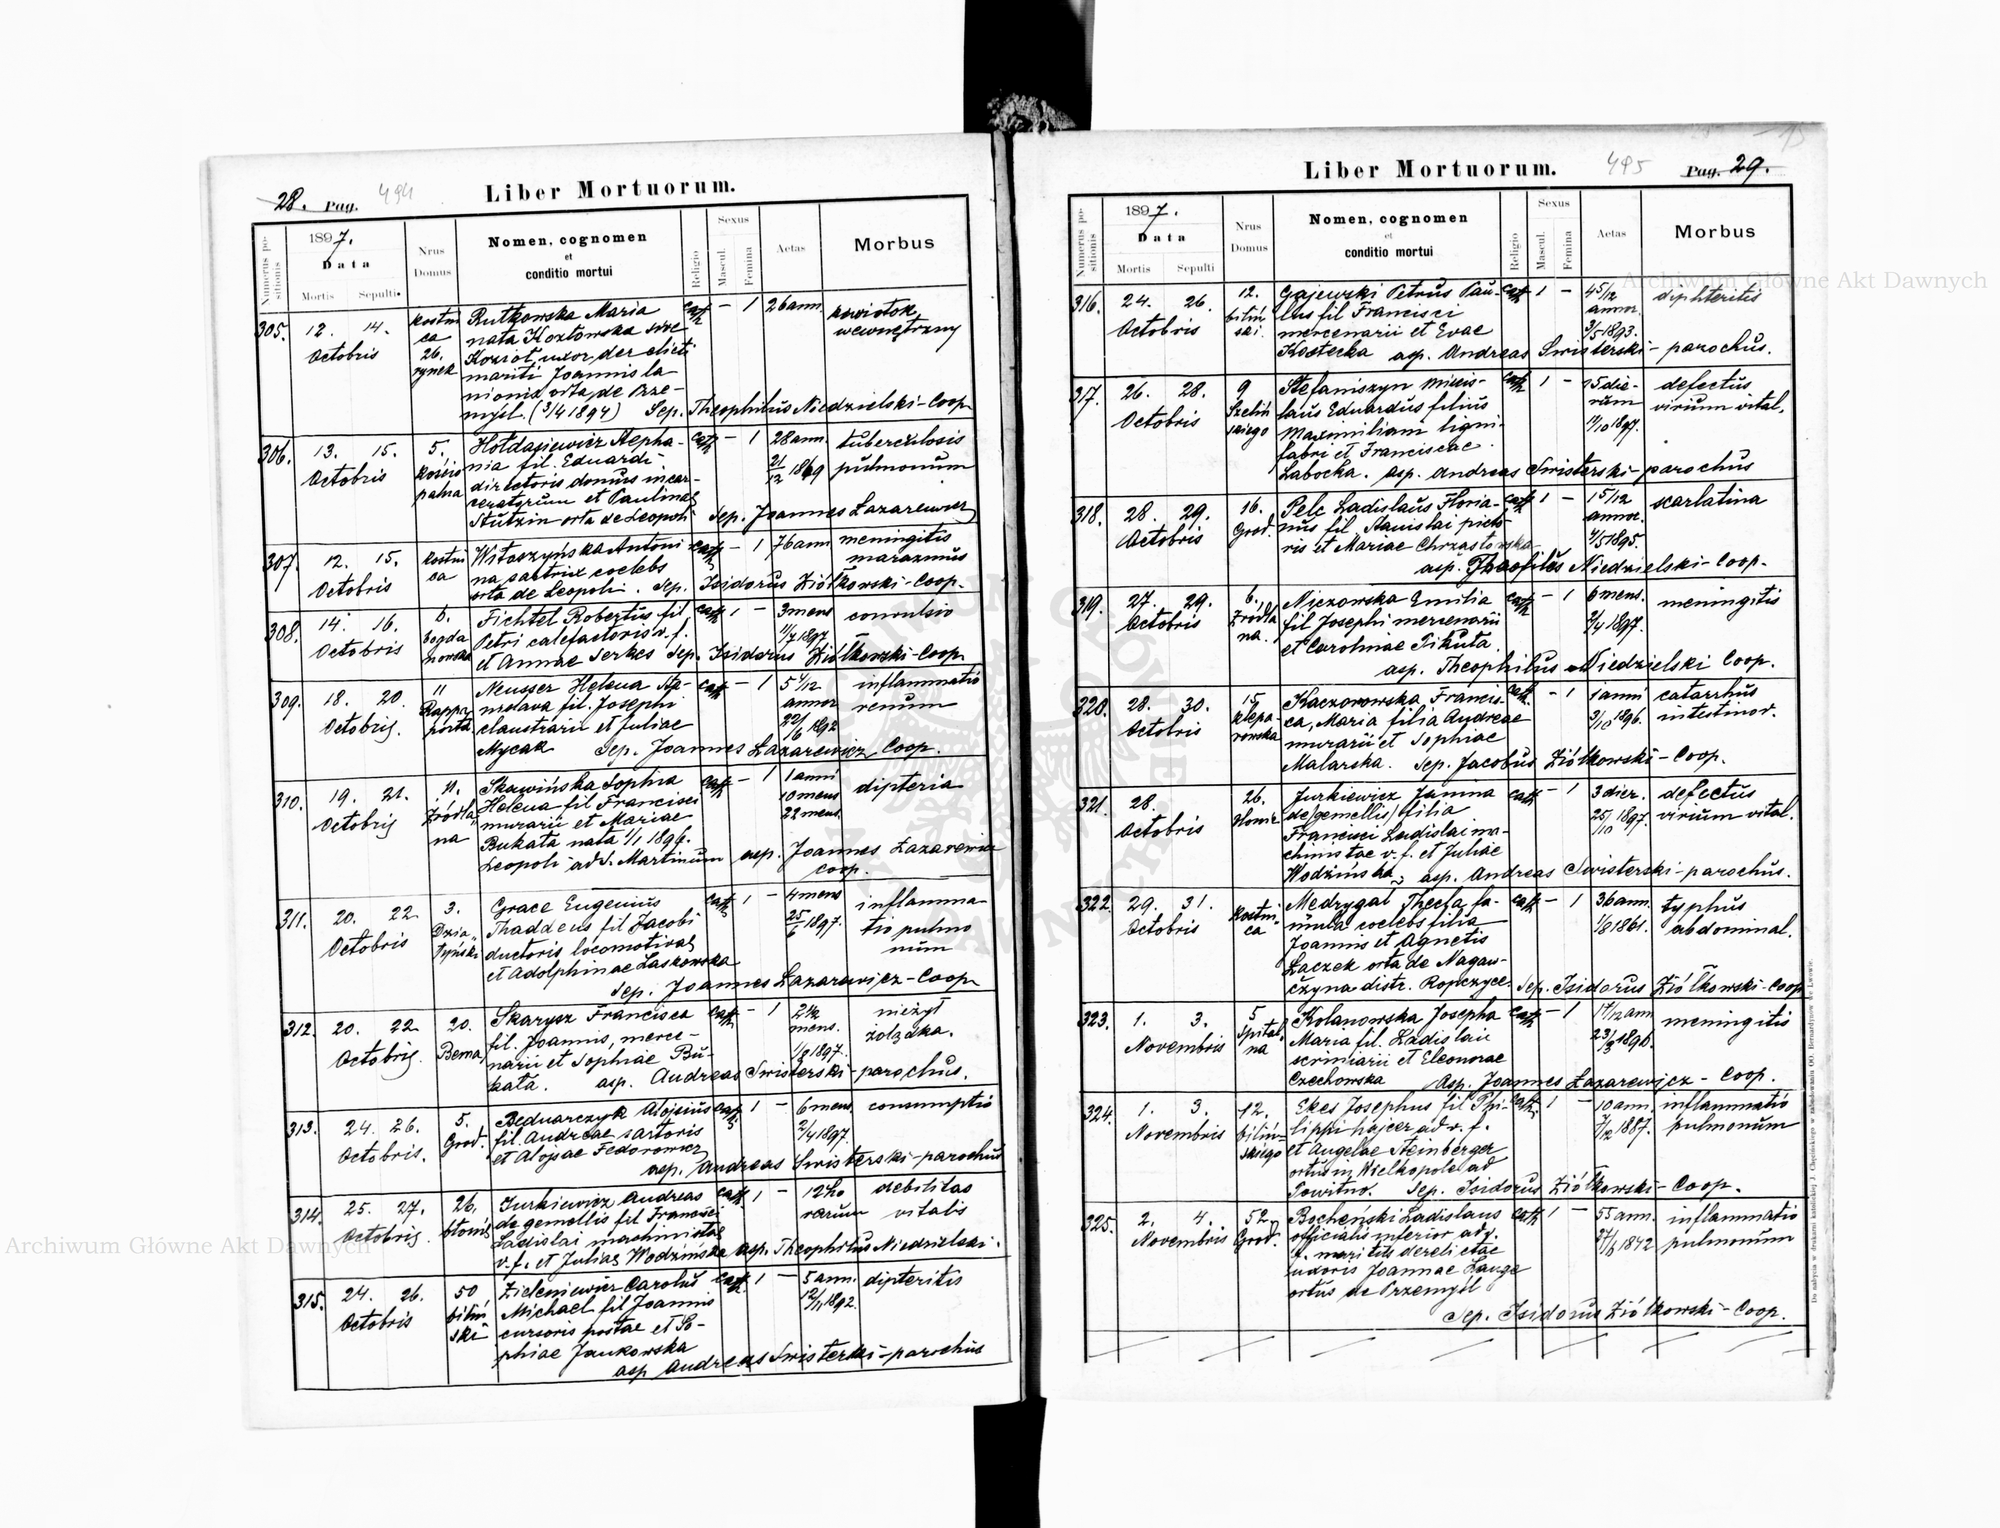 28. Pag. 494
Liber Mortuorum.
Numerus positionis
1897.
Data
Mortis Sepulti
Nrus Domus
Nomen, cognomen
et
conditio mortui
Religio
Sexus
Mascul. Femina
Aetas
Morbus
305. 12. 14. Octobris
26. rynek
Rutkowska Maria cath - 1 26 ann. krwiotok
nata Kozłowska sive wewnętrzny
Kozioł, uxor derelicti
mariti Joannis la-
nionis orta de Prze-
myśl. (3/4 1894) Sep. Theophilus Niedzielski - Coop
306. 13. 15. Octobris
5.
Hołdasiewicz Stepha- cath - 1 28 ann. tuberculosis
nia fil. Eduardi 21/12 1869 pulmonum
directoris domus incar-
ceratorum et Paulinae
Stutzin orta de Leopoli Sep. Joannes Lazarewicz
307. 12. 15. Octobris
kostni
ca
Witoszyńska Antoni cath - 1 76 ann meningitis
na sartrix coelebs marasmus
orta de Leopoli. Sep. Isidorus Ziółkowski - Coop.
308. 14. 16. Octobris
bogda
nowska
Fichtel Robertus fil cath 1 - 3 mens convulsio
Petri calefactoris v. f. 11/7 1897
et Annae Serkes Sep. Isidorus Ziółkowski - Coop
309. 18. 20. Octobris.
11
Rappa
porta
Neusser Helena Sta- cath - 1 5 4/12 inflammatio
nislava fil. Josephi annor renum
claustrarii et Juliae 22/6 1892
Nycak Sep. Joannes Lazarewicz Coop.
310. 19. 21. Octobris
11.
Źródla
na
Skawińska Sophia cath - 1 1 anni dipteria
Helena fil Francisci 10 mens
murarii et Mariae 22 mens.
Bukata nata 1/1 1896.
Leopoli ad S. Martinum asp. Joannes Lazarewicz
Coop.
311. 20. 22 Octobris
3.
Dzia
łyński
Grace Eugenius cath 1 - 4 mens inflamma
Thaddeus fil Jacobi 25/6 1897. tio pulmo
ductoris locomotivae num
et Adolphinae Laskowska
Sep. Joannes Lazarewicz - Coop
312. 20. 22 Octobris.
20.
Berna
Skarysz Francisca cath - 1 2 1/2 nieżyt
fil. Joannis, merce- mens. żołądka.
narii et Sophiae Bu- 1/8 1897.
kata. asp. Andreas Swisterski - parochus.
313. 24. 26. Octobris.
5.
Grod.
Bednarczyk Alojsius cath 1 - 6 mens. consumptio
fil. Andreae sartoris 2/4 1897.
et Alojsae Fedorowicz
asp. Andreas Swisterski - parochus
314. 25. 27. Octobris.
26.
Jurkiewicz Andreas cath 1 - 12 ho debilitas
de gemellis fil Francisci rarum vitalis
Ladislai machinistae
v. f. et Juliae Wodzińska asp. Theophilus Niedzielski.
315. 24. 26. Octobris
50
biliń
ski
Zieleniewicz Carolus cath. 1 - 5 ann. dipteritis
Michael fil Joannis 12/11 1892.
cursoris postae et So-
phiae Jankowska
asp Andreas Swisterski - parochus
495 Pag. 29.
Liber Mortuorum.
Numerus positionis
1897.
Data
Mortis Sepulti
Nrus Domus
Nomen, cognomen
et
conditio mortui
Religio
Sexus
Mascul. Femina
Aetas
Morbus
316. 24. 26. Octobris
12.
biliń
ski.
Gajewski Petrus Pau- cath 1 - 4 5/12 diphteritis
lus fil Francisci annor.
mercenarii et Evae 3/5 1893.
Kostecka asp. Andreas Swisterski - parochus.
317. 26. 28. Octobris
9
Szeliń
skiego
Stefaniszyn Miecis- cath 1 - 15 die- defectus
laus Eduardus filius rum virium vital.
Maximiliani ligni- 11/10 1897.
fabri et Franciscae
Labocka. asp. Andreas Swisterski - parochus
318. 28. 29. Octobris
16.
Grod.
Pelc Ladislaus Floria- cath 1 - 1 5/12 scarlatina
nus fil Stanislai picto- annor.
ris et Mariae Chrzastowska
asp. Theofilus Niedzielski - Coop.
319. 27. 29. Octobris
6.
Źródla
na.
Niczowska Emilia cath - 1 6 mens. meningitis
fil Josephi mercenarii 2/4 1897.
et Carolinae Pikuta
asp. Theophilus Niedzielski Coop.
320. 28. 30. Octobris
15
klepa
rowska
Kaczorowska Francis- cath. - 1 1 anni catarrhus
ca, Maria filia Andreae 3/10 1896. intestinor.
murarii et Sophiae
Malarska. Sep. Jacobus Ziółkowski - Coop.
321. 28. Octobris
26.
Jurkiewicz Janina cath - 1 3 dier. defectus
de (gemellis) filia 25/10 1897. virium vital.
Francisci Ladislai ma-
chinistae v. f. et Juliae
Wodzińska, asp. Andreas Swisterski - parochus.
322. 29. 31. Octobris
Kostni
ca
Medrygal Thecla fa- cath - 1 36 ann. typhus
mula coelebs filia 1/8 1861. abdominal.
Joannis et Agnetis
Łaczek orta de Nagaw-
czyna distr. Ropczyce. Sep. Isidorus Ziółkowski - Coop
323. 1. 3. Novembris
5
Spital
na
Kolanowska Josepha cath - 1 1 7/12 ann meningitis
Maria fil. Ladislai 23/3 1896.
scriniarii et Eleonorae
Czechowska Asp. Joannes Lazarewicz - Coop.
324. 1. 3. Novembris
12.
biliń-
skiego
Ekes Josephus fil Phi- cath. 1 - 10 ann. inflammatio
lippi hajcer ad v. f. 7/12 1887. pulmonum
et Angelae Steinberger
ortus in Wielkopole ad
Powitno. Sep. Isidorus Ziółkowski - Coop.
325. 2. 4. Novembris
52
Grod.
Bocheński Ladislaus cath 1 - 55 ann. inflammatio
officialis inferior ad v. 27/6 1842 pulmonum
f. maritus derelictae
uxoris Joannae Lange
ortus de Przemyśl
Sep. Isidorus Ziółkowski - Coop.
Archiwum Główne Akt Dawnych
Archiwum Główne Akt Dawnych